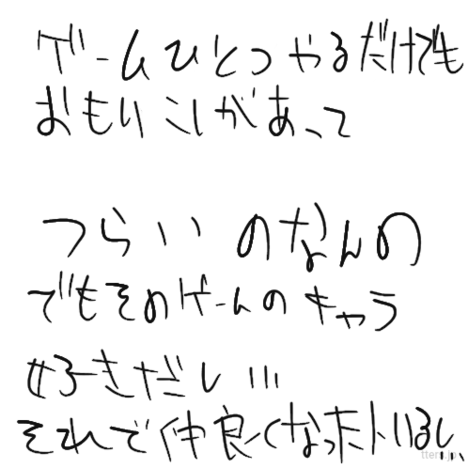 ゲームひとつやるだけでも
おもいこしがあって
つらいのなんの
でもそのゲームのキャラ
好きだし…
それで仲良くなった人いるし